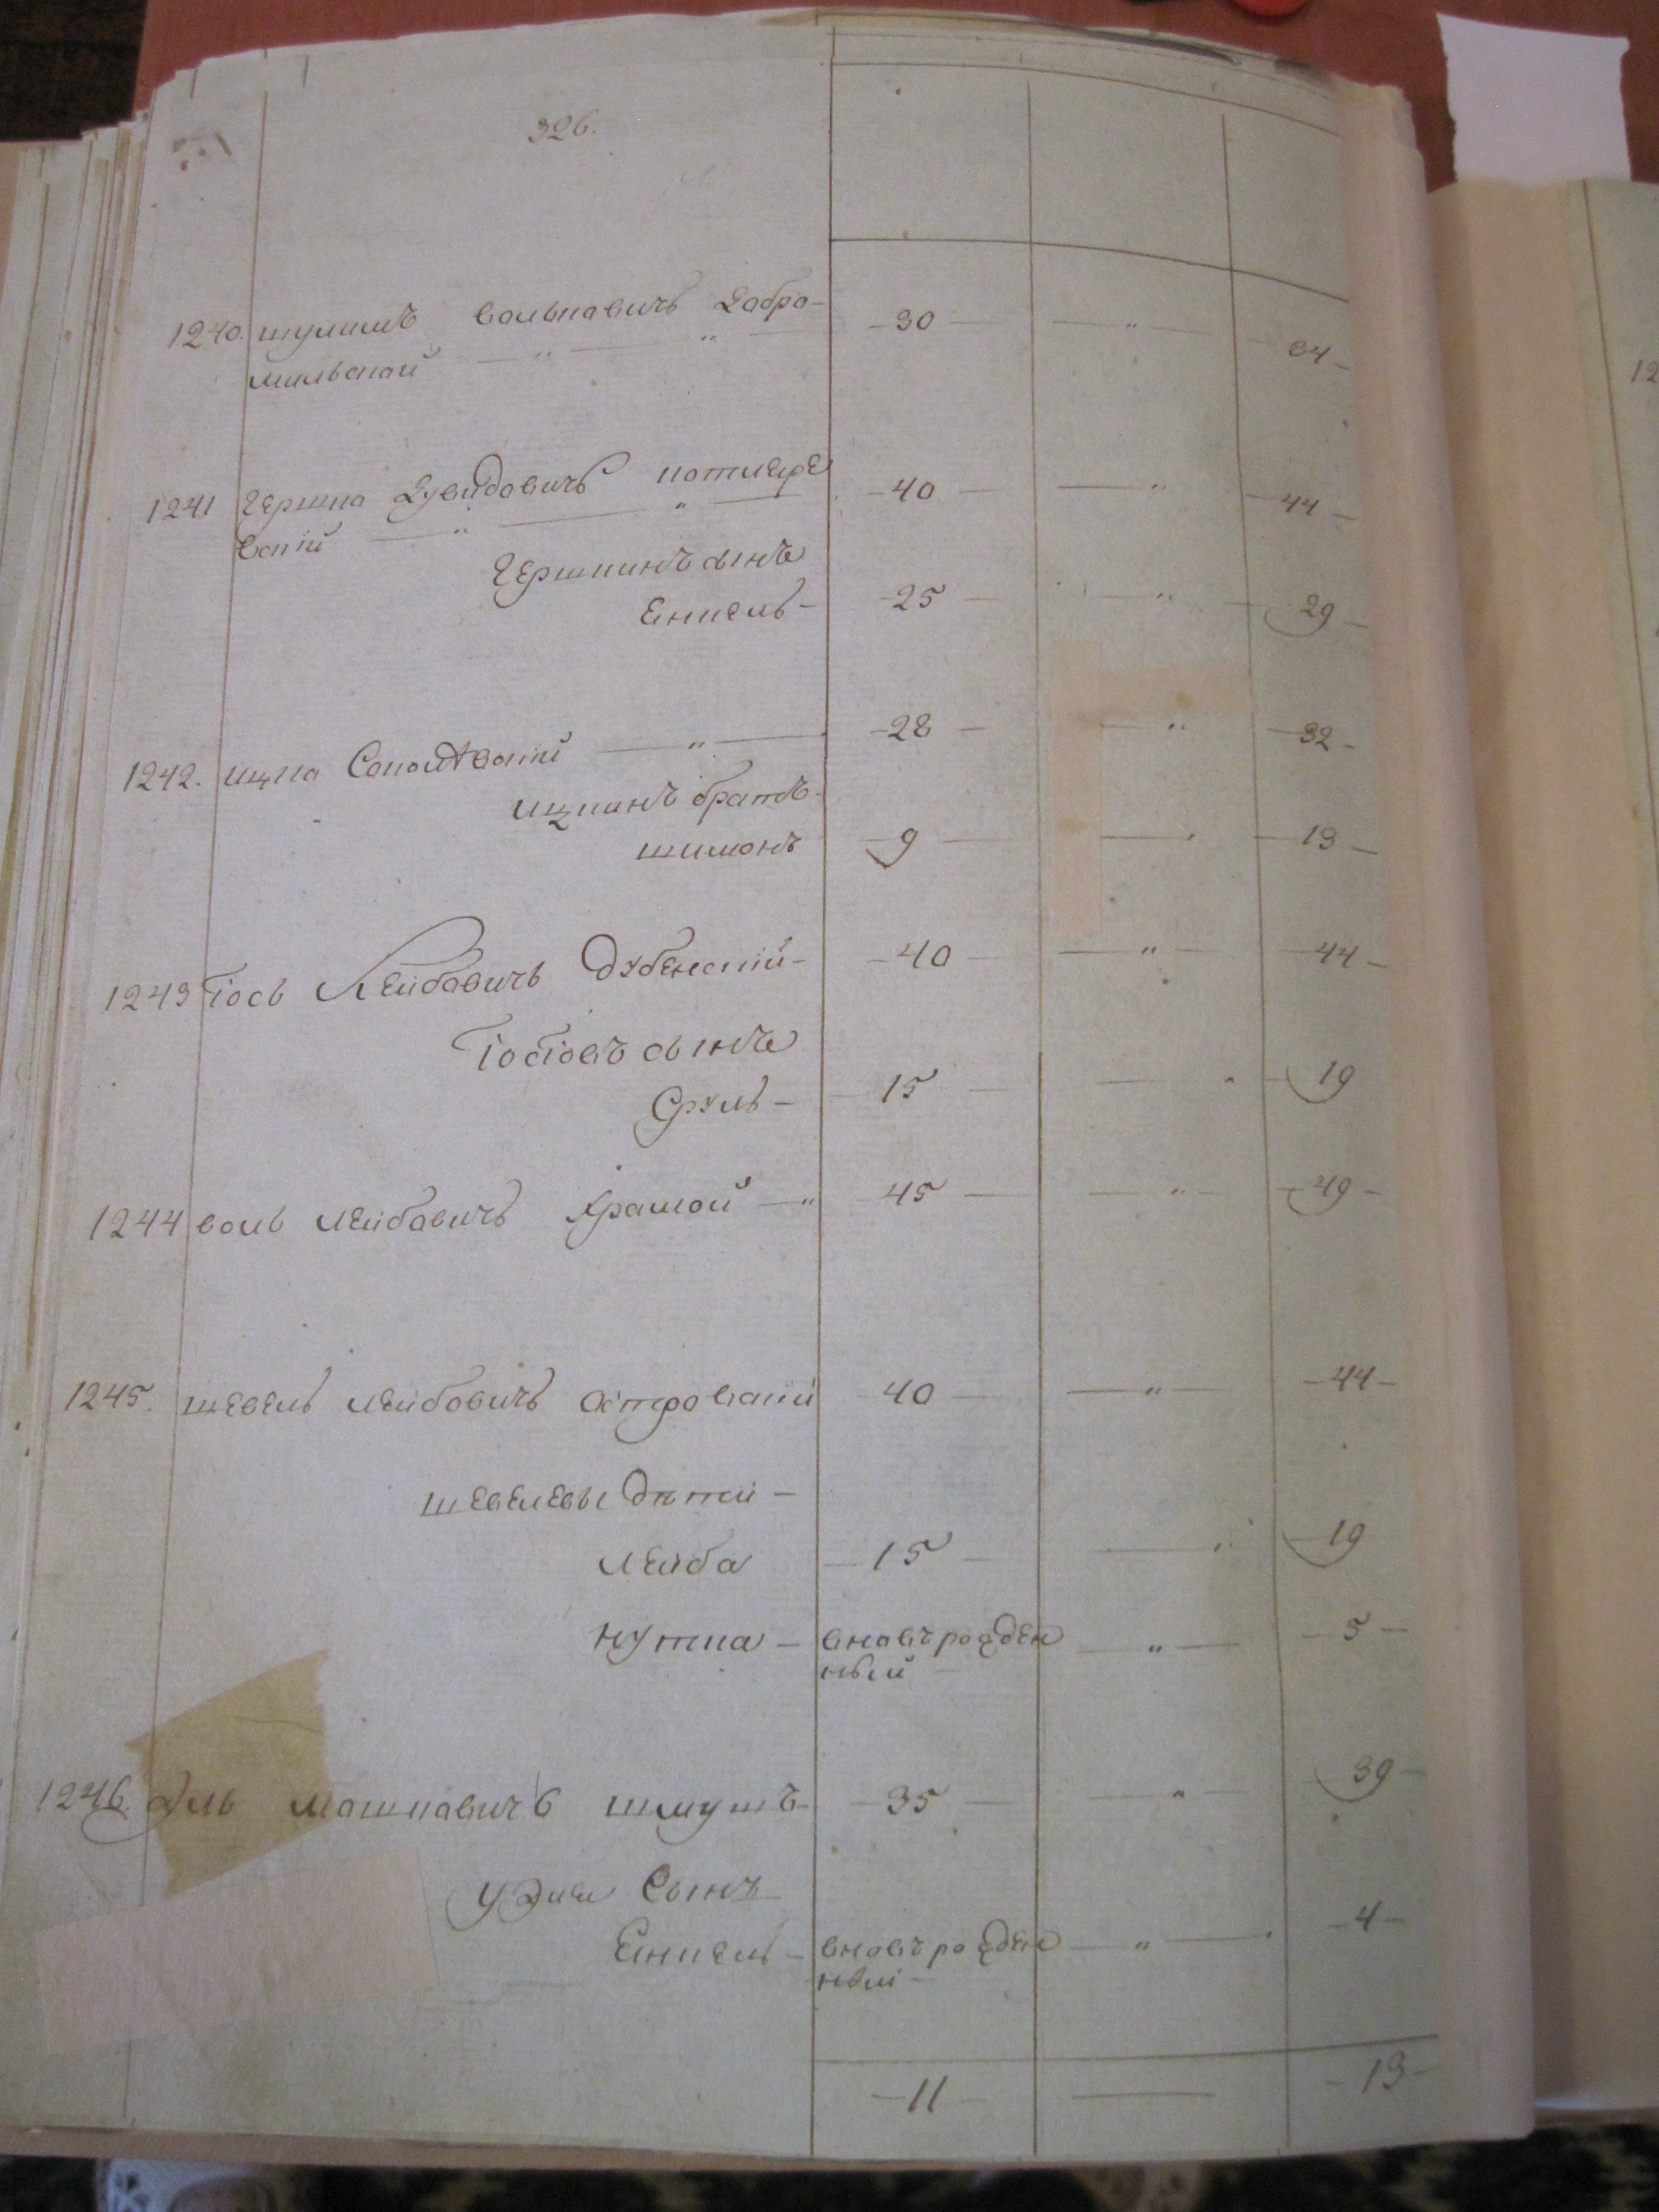 326.
1240. шулимъ вольковичъ Добро- -30- —"— 34-
мильской — " — " —
1241 Гершко Дувидовичъ котляре -40- —"— -44-
вскій — " — " —
Гершкинъ сынъ
Енкель- -25- —"— 29-
1242. ицко — " — -28- —"— -32-
ицкинъ братъ-
шимонъ -9- —"— -13-
1243 Іось Лейбовичъ Дубенскій- -40- —"— -44-
Іосіовъ сынъ
Сруль- -15- —"— 19
1244 воль лейбовичъ Храмой —" -45- —"— -49-
1245. шевель лейбовичъ Островскій 40- —"— -44-
шевелевы дѣти-
лейба -15- —"— -19
нутка- вновьрожден —"— -5-
ный-
1246. Эль машковичъ шмушъ- -35- —"— 39-
у Эля Сынъ
Енкель- вновьрожден —"— -4-
ный-
-11- — -13-